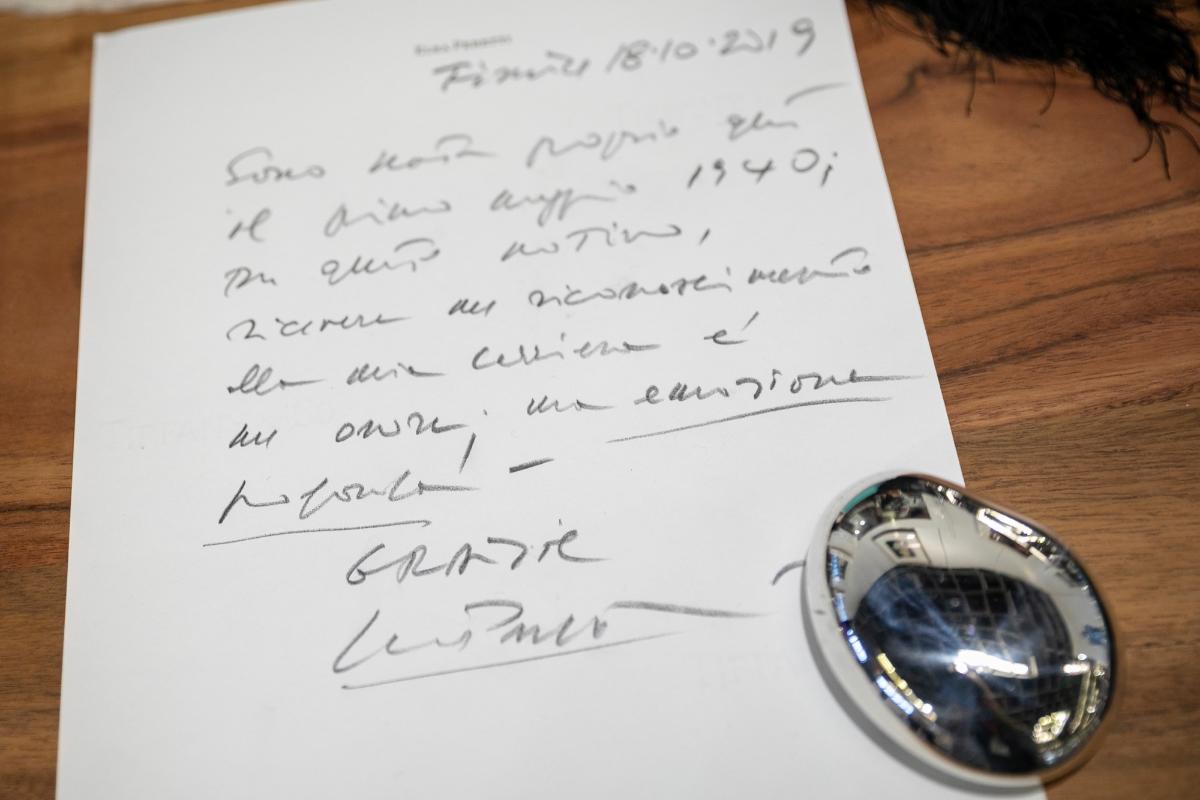 ELSA PERETTI
Firenze 18.10.2019
Sono nata proprio quì
il primo maggio 1940;
per questo motivo,
ricevere un riconoscimento
alla mia carriera é
un onore, una emozione
profonda! –
GRAZIE